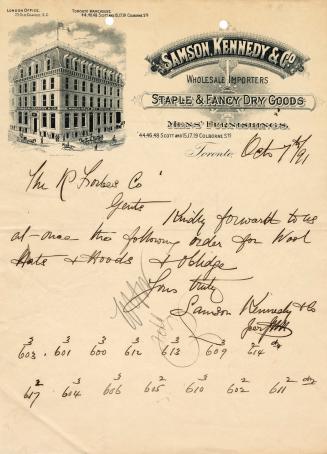 London Office. Toronto Warehouse.
44, 46, 48 Scott and 15, 17, 19 Colborne Sts
Samson, Kennedy & Co.
Wholesale Importers
Staple & Fancy Dry Goods
Mens' Furnishings.
44, 46, 48 Scott and 15, 17, 19 Colborne Sts
Toronto, Octo 7th/91
The R Forbes Co
Gents
Kindly forward to us
at once the following order for Wool
Hats & Hoods & oblidge
Yours truly
Samson Kennedy & Co
3 3 3 3 3 3 2 dz
603 . 601 600 612 613 609 614
2 3 3 2 3 2 2 doz
617 . 604 606 605 610 602 611